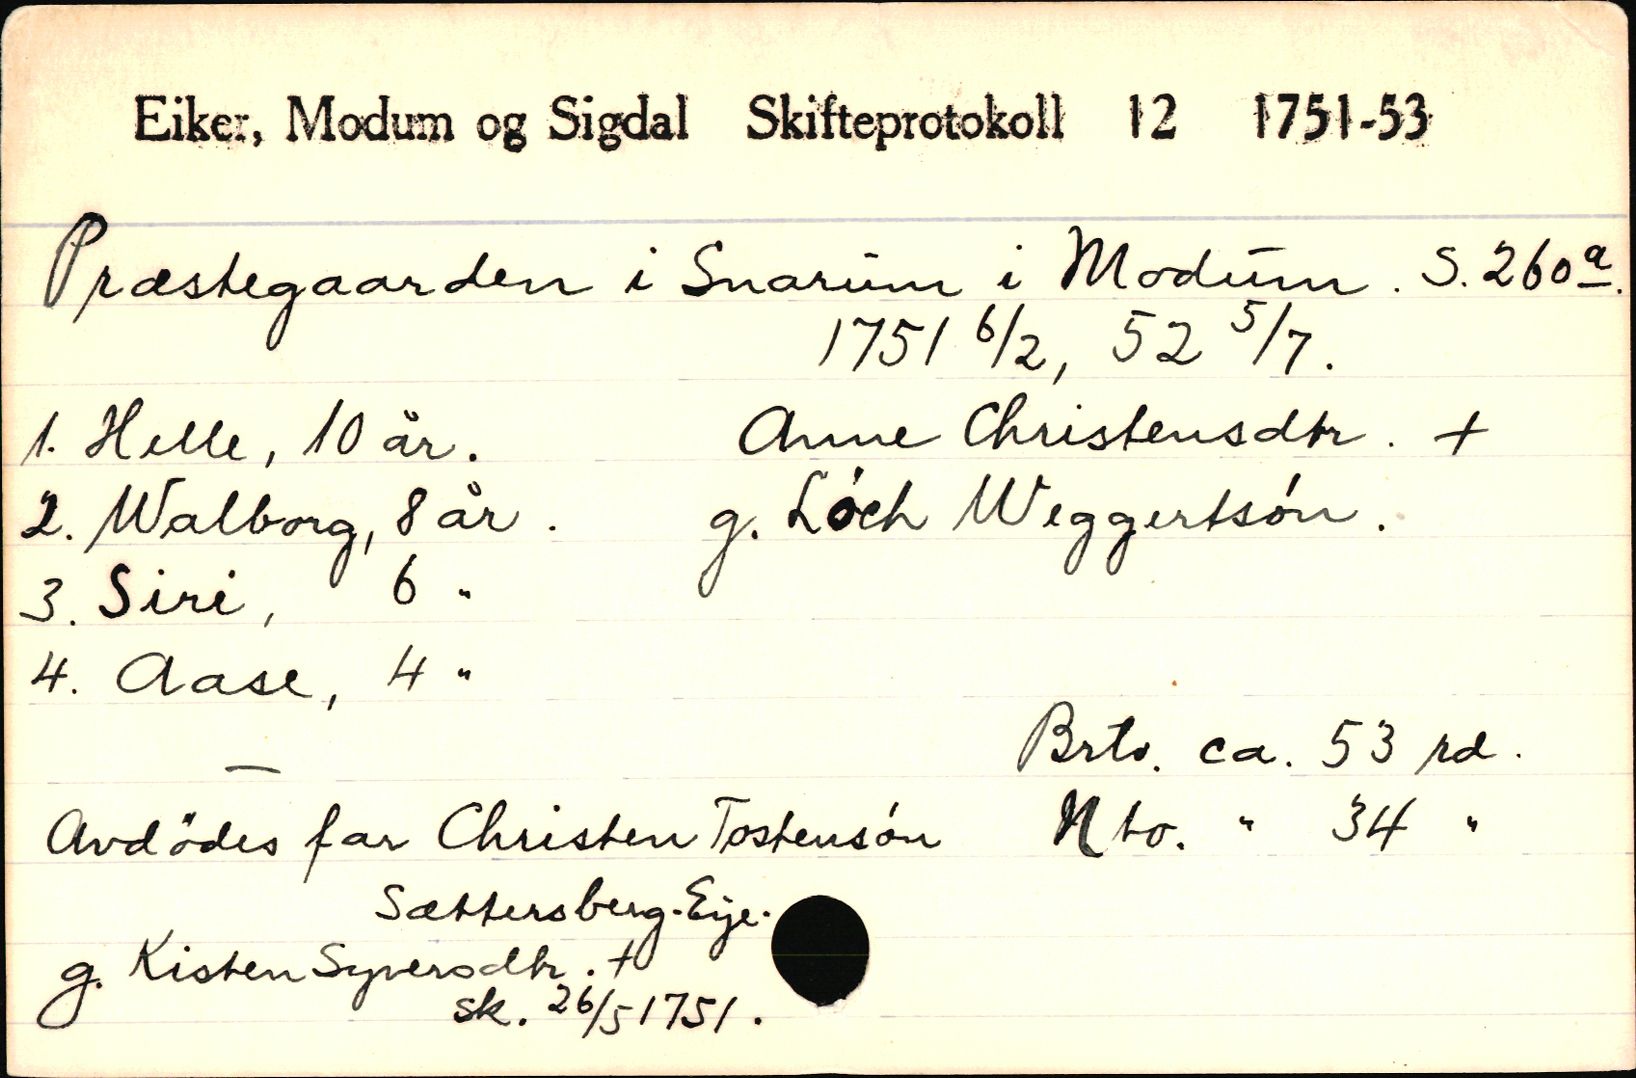 Eiker, Modum og Sigdal Skifteprotokoll 12 1751-53
Præstegaarden i Snarum i Modum. S. 260a.
1751 6/2, 52 5/7.
1. Helle, 10 år. Anne Christensdtr. +
2. Walborg, 8 år. g. Lóch Weggertsón.
3. Siri, 6 "
4. Aase, 4 "
Brto. ca. 53 rd.
—
Avdödes far Christen Tostensón Nto. " 34 "
Sættersberg-Eije.
g. Kisten Syversdtr. +
sk. 26/5 1751.